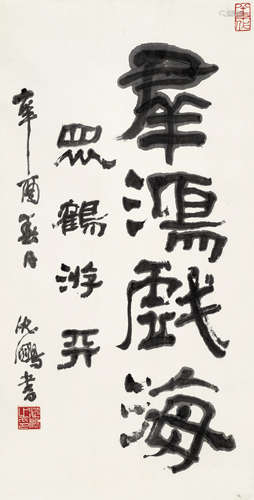 羣鴻戲海
眾鶴游天
辛酉
沈鵬書